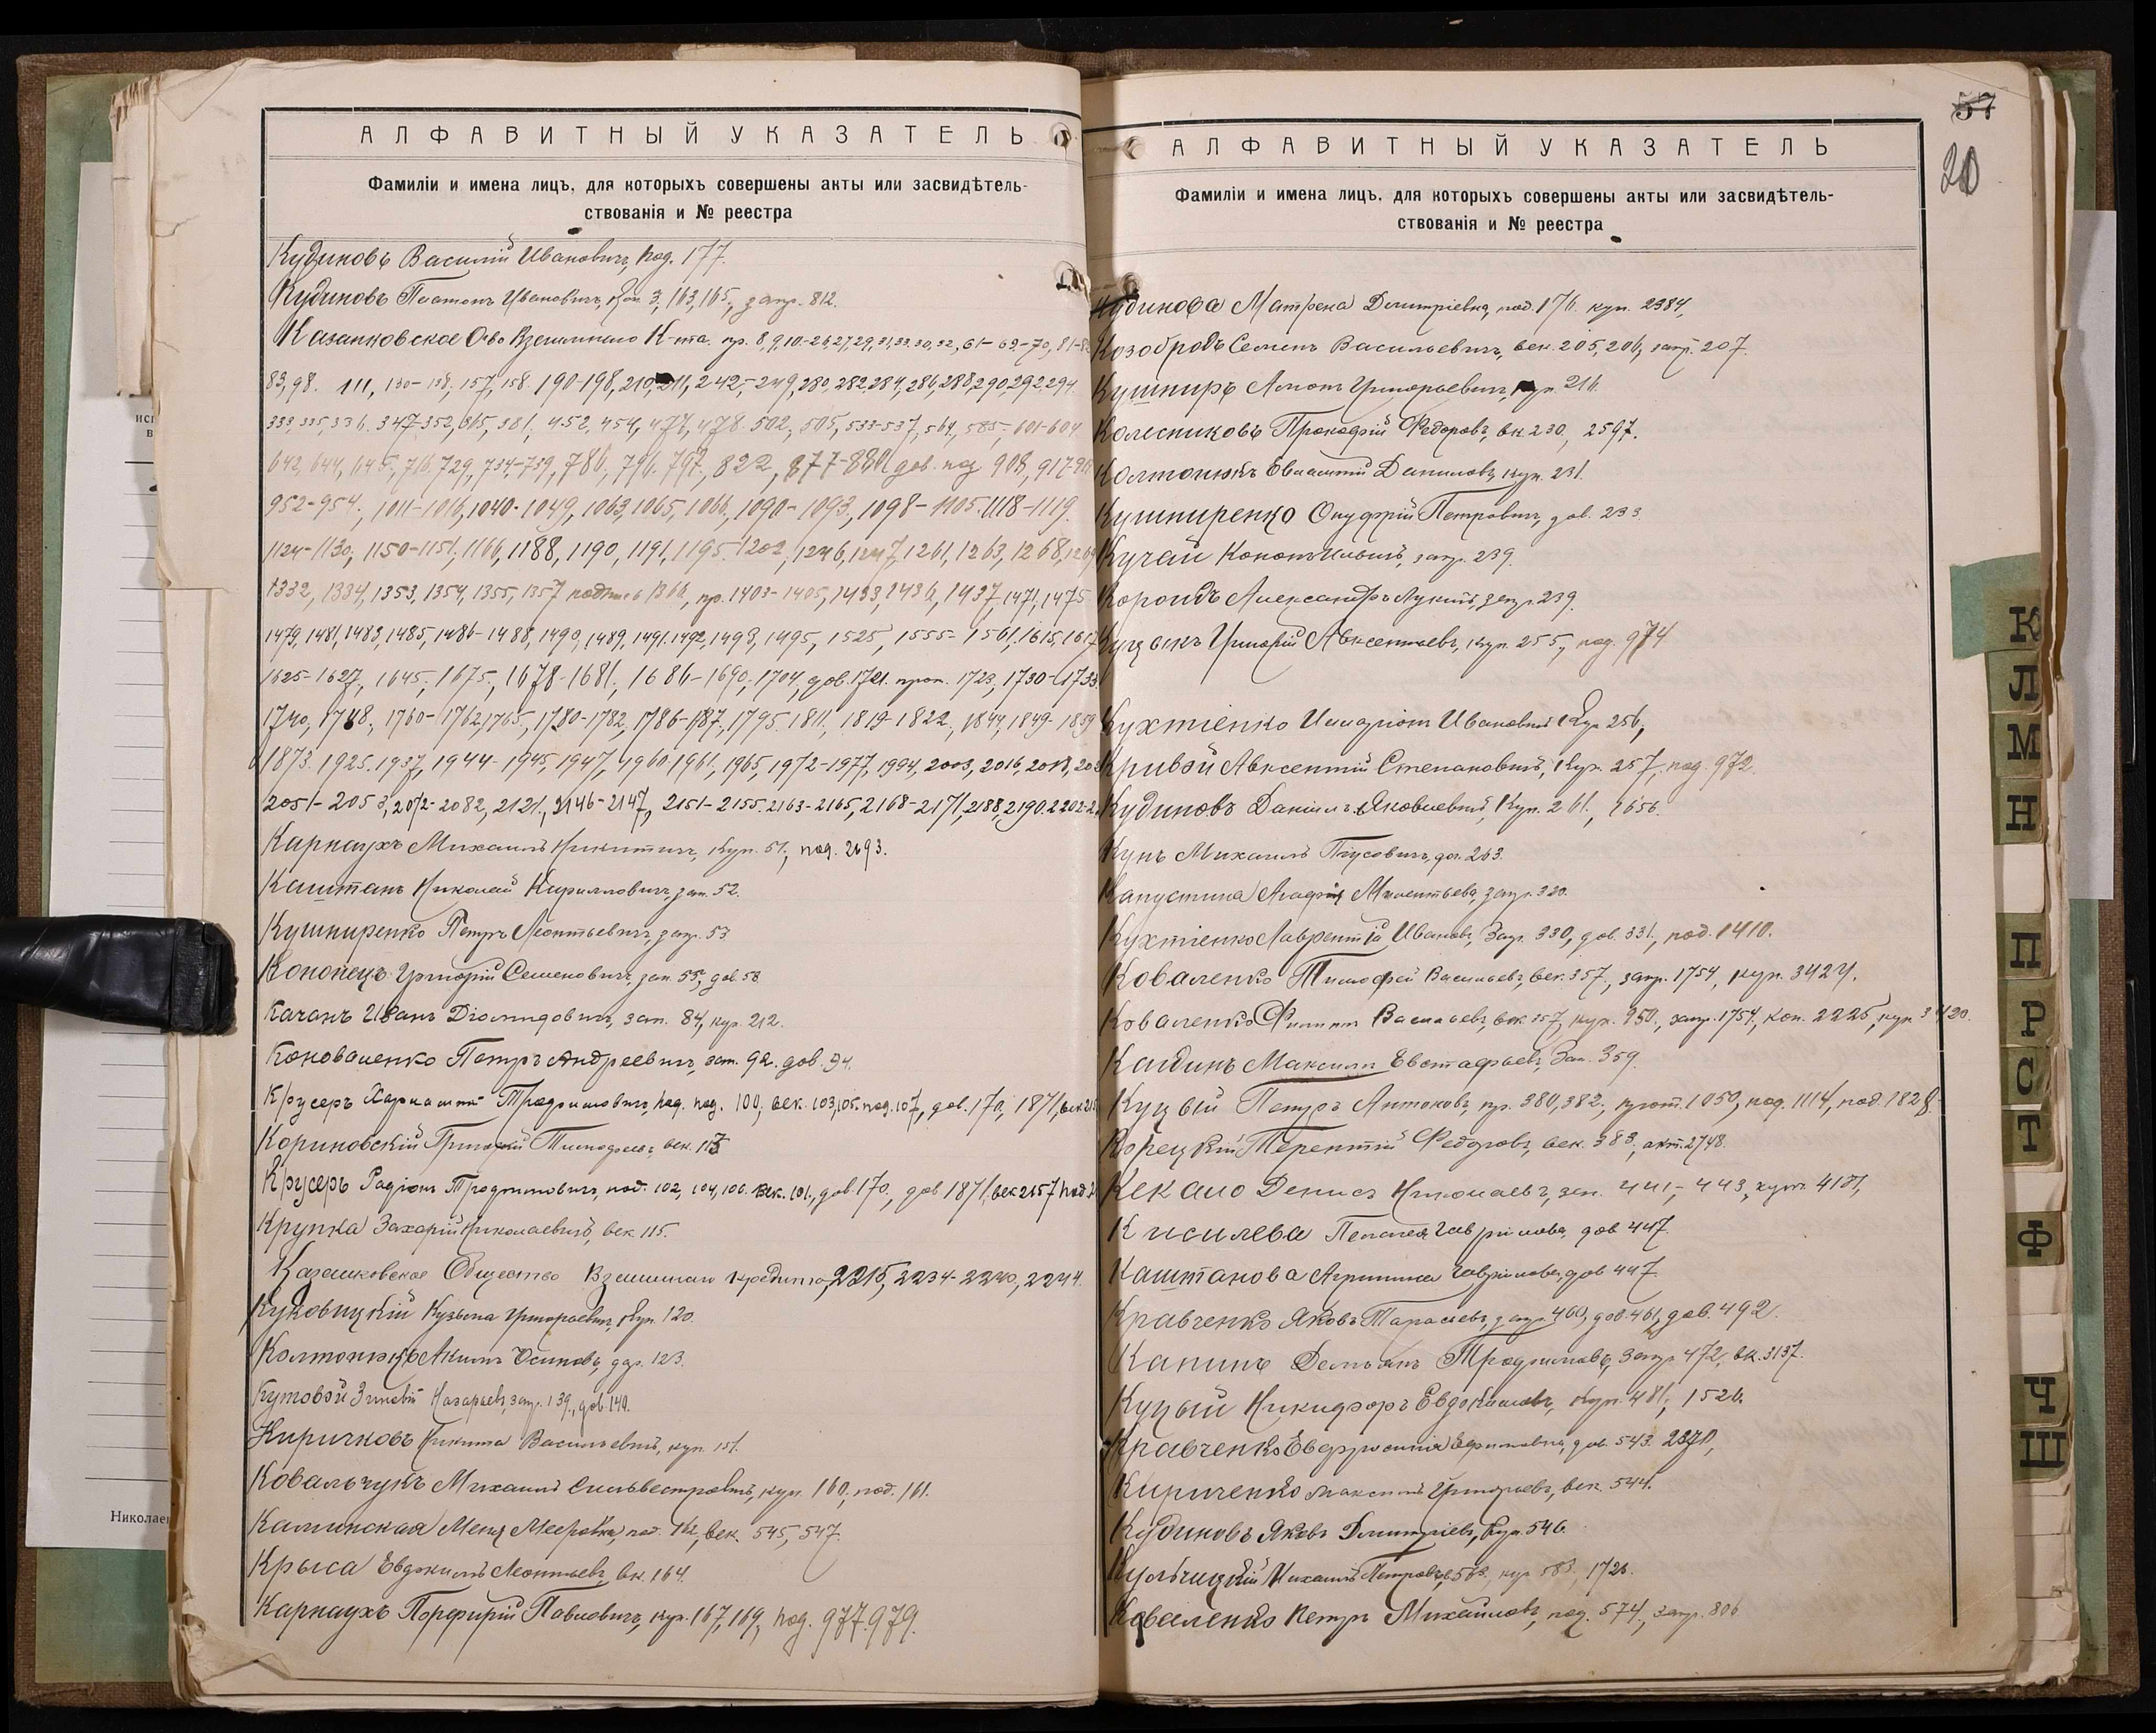 АЛФАВИТНЫЙ УКАЗАТЕЛЬ
Фамиліи и имена лицъ, для которыхъ совершены акты или засвидѣтель-
ствованія и № реестра
Кудиновъ Василій Ивановичъ, под. 177.
Кудиновъ Платонъ Ивановичъ, 3, 163, 165, запр. 812.
Казанковское О-во Взаимнаго К-та. пр. 8, 9, 10-26, 27, 29, 31, 33, 30, 32, 61-62-70,
83, 98. 111, 130-138, 157, 158. 190-198, 210, 211, 242,-249, 280, 282, 284, 286, 288, 290, 292, 294
333, 335, 336. 347-352, 365, 381, 452, 454, 474, 478. 502, 505, 533-537, 564, 585, 601-604
642, 644, 645, 716, 729, 734-739, 786, 796, 797, 822, 877-880, дов. под 908,
952-954, 1011-1016, 1040-1049, 1063, 1065, 1066, 1090-1093, 1098-1105. 1118-1119.
1124-1130, 1150-1151, 1166, 1188, 1190, 1191, 1195. 1202, 1246, 1247, 1261, 1263, 1268,
1332, 1334, 1353, 1354, 1355, 1357 1366, пр. 1403-1405, 1433, 1436, 1437, 1471, 1475
1479, 1481, 1483, 1485, 1486-1488, 1490, 1489, 1491, 1492, 1493, 1495, 1525, 1555-1561, 1615,
1625-1627, 1645, 1675, 1678-1681, 1686-1690, 1704, дов. 1721. 1723, 1730-1733
1740, 1748, 1760-1762, 1765, 1780-1782, 1786-1787, 1795. 1811, 1819-1822, 1844, 1849-1859
1873. 1925. 1937, 1944-1945, 1947, 1960-1961, 1965, 1972-1977, 1994, 2003, 2016, 2018,
2051-2053, 2072-2082, 2121, 2146-2147, 2151-2155. 2163-2165, 2168-2171, 2188, 2190.
Карнаухъ Михаилъ Никитичъ, куп. 51, под. 2693.
Каштанъ Николай Кирилловичъ, зап. 52.
Кушниренко Петръ Леонтьевичъ, запр. 53
Кононецъ Григорій Семеновичъ, зап. 55, дов. 58
Качанъ Иванъ Діомидовичъ, зап. 84, куп. 212.
Коноваленко Петръ Андреевичъ, зап. 92. дов. 94.
Крусеръ Трофимовичъ, под. под. 100, век. 103, 105. под. 107, дов. 170, 1871,
Кориновскій Григорій Тимофеевъ, век. 113
Крусеръ Радіонъ Трофимовичъ, под. 102, 104, 106. век. 101, дов. 170, дов 1871, век 2157
Крупка Захарій Николаевичъ, век 115.
Казанковское Общество Взаимнаго кредита, 2215, 2234-2240, 2244.
Куковицкій Кузьма Григорьевичъ, куп. 120.
Колтонюкъ Акимъ Осиповъ, 123.
Кутовой Зиновій Назарьевъ, запр. 139, дов. 140.
Киричковъ Никита Васильевичъ, куп. 151.
Ковальчукъ Михаилъ Сильвестровичъ, куп. 160, под. 161.
Калинская Мееровна, под. 162, век. 545, 547.
Крыса Евдокимъ Леонтьевъ, вк. 164.
Карнаухъ Порфирій Павловичъ, куп. 167, 169, под. 977. 979.
57
20
АЛФАВИТНЫЙ УКАЗАТЕЛЬ
Фамиліи и имена лицъ, для которыхъ совершены акты или засвидѣтель-
ствованія и № реестра
Кудинова Матрена Димитріевна, под. 176. куп. 2384,
Козобродъ Семенъ Васильевичъ, век. 205, 206, запр. 207.
Кушниръ Григорьевичъ, куп. 216.
Колесниковъ Прокофій Федоровъ, вк. 230, 2597.
Колтонюкъ Даниловъ, куп. 231.
Кушниренко Онуфрій Петровичъ, дов. 233.
Кучай Кононъ Ильичъ, запр. 239.
Короидъ Александръ Лукичъ, запр. 239.
Григорій Авксентьевъ, куп. 255, под. 974
Кухтіенко Иларіонъ Ивановичъ, Куп. 256,
Кривой Авксентій Степановичъ, Куп. 257, под. 972.
Кудиновъ Даніилъ Яковлевичъ, Куп. 261, 1656.
Кунъ Михаилъ 263.
Капустина Агафія запр. 320.
Кухтіенко Лаврентій Ивановъ, Запр. 330, дов. 331, под. 1410.
Коваленко Тимофей Васильевъ, век. 357, запр. 1754, куп. 3424.
Коваленко Филиппъ Васильевъ, век. 357, куп. 950, запр. 1754, коп. 2225, куп 3420.
Кайдинъ Максимъ Евстафьевъ, Зап. 359.
Куцый Петръ Антоновъ, пр. 380, 382, 1050, под. 1114, под. 1828.
Корецкій Терентій Федоровъ, век. 383, акт. 2748.
Кекало Денисъ Николаевъ, зап. 441,-443, 4181,
Кисилева Пелагея Гаврилова, дов 447.
Каштанова Агрипина Гаврилова, дов 447.
Кравченко Яковъ Тарасьевъ, запр. 460, дов. 461, дов. 492.
Капинъ Демьянъ Трофимовъ, запр. 472, вк. 3137.
Куцый Никифоръ Евдокимовъ, куп. 481, 1526.
Кравченко Евфросинія Ефимовна, дов. 543. 2370,
Кириченко Максимъ Григорьевъ, век. 544.
Кудиновъ Яковъ Димитріевъ, куп. 546.
Кульчицкій Михаилъ Петровъ, 1726.
Коваленко Петръ Михайловъ, под. 574, запр. 806
К
Л
М
Н
П
Р
С
Т
Ф
Ч
Ш
Николаев